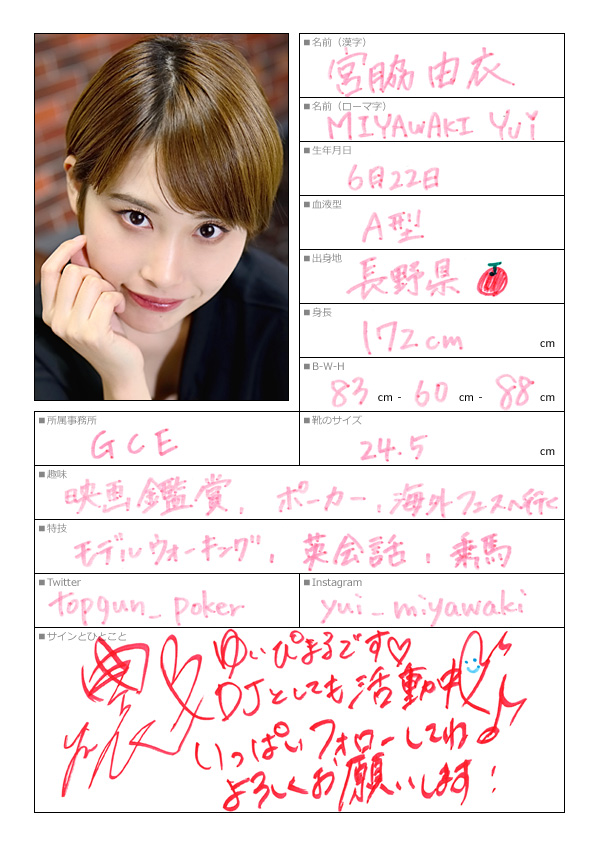 ■名前（漢字）
宮脇 由衣
■名前（ローマ字）
MIYAWAKI Yui
■生年月日
6月22日
■血液型
A型
■出身地
長野県
■身長
172cm cm
■B-W-H
83 cm - 60 cm - 88 cm
■所属事務所
GCE
■靴のサイズ
24.5 cm
■趣味
映画鑑賞, ポーカー, 海外フェスへ行く
■特技
モデルウォーキング, 英会話, 乗馬
■Twitter
topgun_poker
■Instagram
yui_miyawaki
■サインとひとこと
ゆいぴまるです♡
DJとしても活動中
いっぱいフォローしてね
よろしくお願いします!